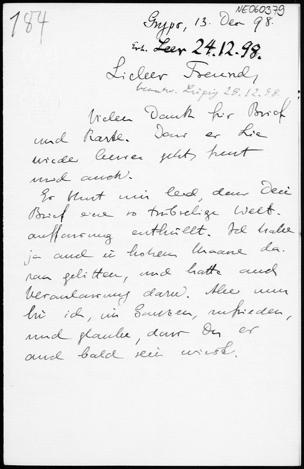 184
NE060379
Gryps, 13. Dez 98.
Erh. Leer 24.12.98.
Lieber Freund,
beantw. Leipzig 28.12.98.
Vielen Dank für Brief
und Karte. Dass er Sie
wieder lesen geht, freut
mich auch.
Es thut mir leid, dass Dein
Brief eine so trübselige Welt-
auffassung enthüllt. Ich habe
ja auch in hohem Maasse da-
ran gelitten, und hatte auch
Veranlassung dazu. Aber nun
bin ich, im Ganzen, zufrieden,
und glaube, dass Du es
auch bald sein wirst.